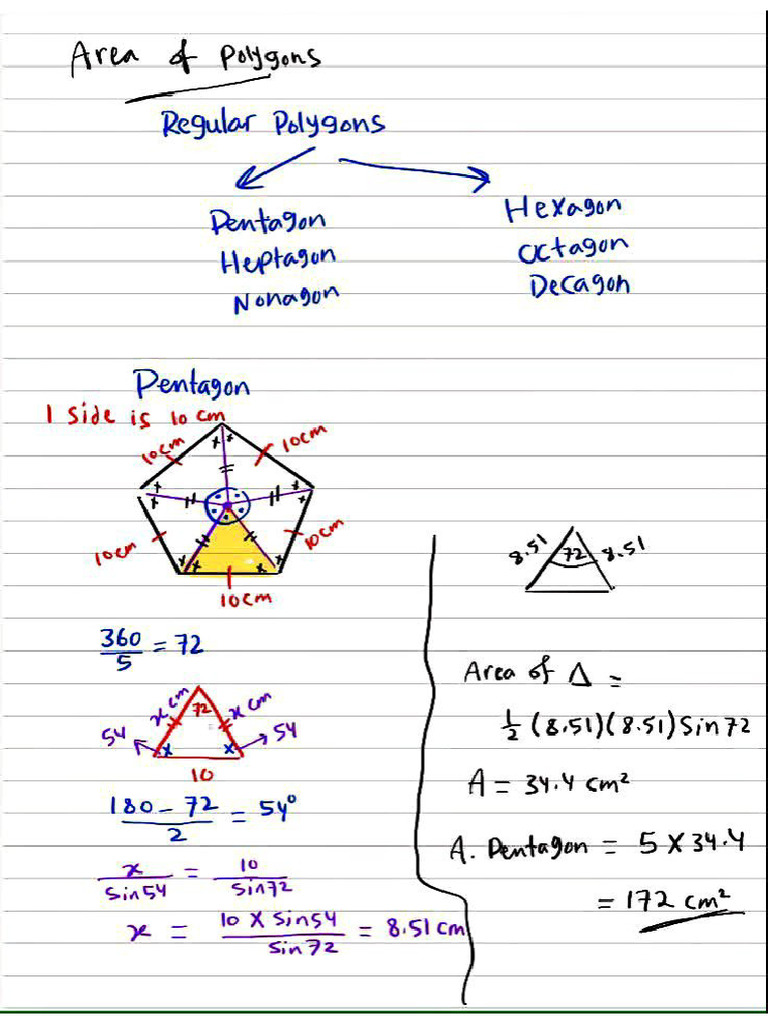 Area of Polygons
Regular Polygons
Pentagon
Heptagon
Nonagon
Hexagon
Octagon
Decagon
Pentagon
1 side is 10 cm
10cm
10cm
10cm
10cm
10cm
360/5 = 72
x cm
72
x cm
54
x
x
54
10
(180 - 72)/2 = 54°
x/sin54 = 10/sin72
x = (10 × sin54)/sin72 = 8.51 cm
8.51
72
8.51
Area of Δ =
1/2 (8.51)(8.51) Sin 72
A = 34.4 cm²
A. Pentagon = 5 × 34.4
= 172 cm²